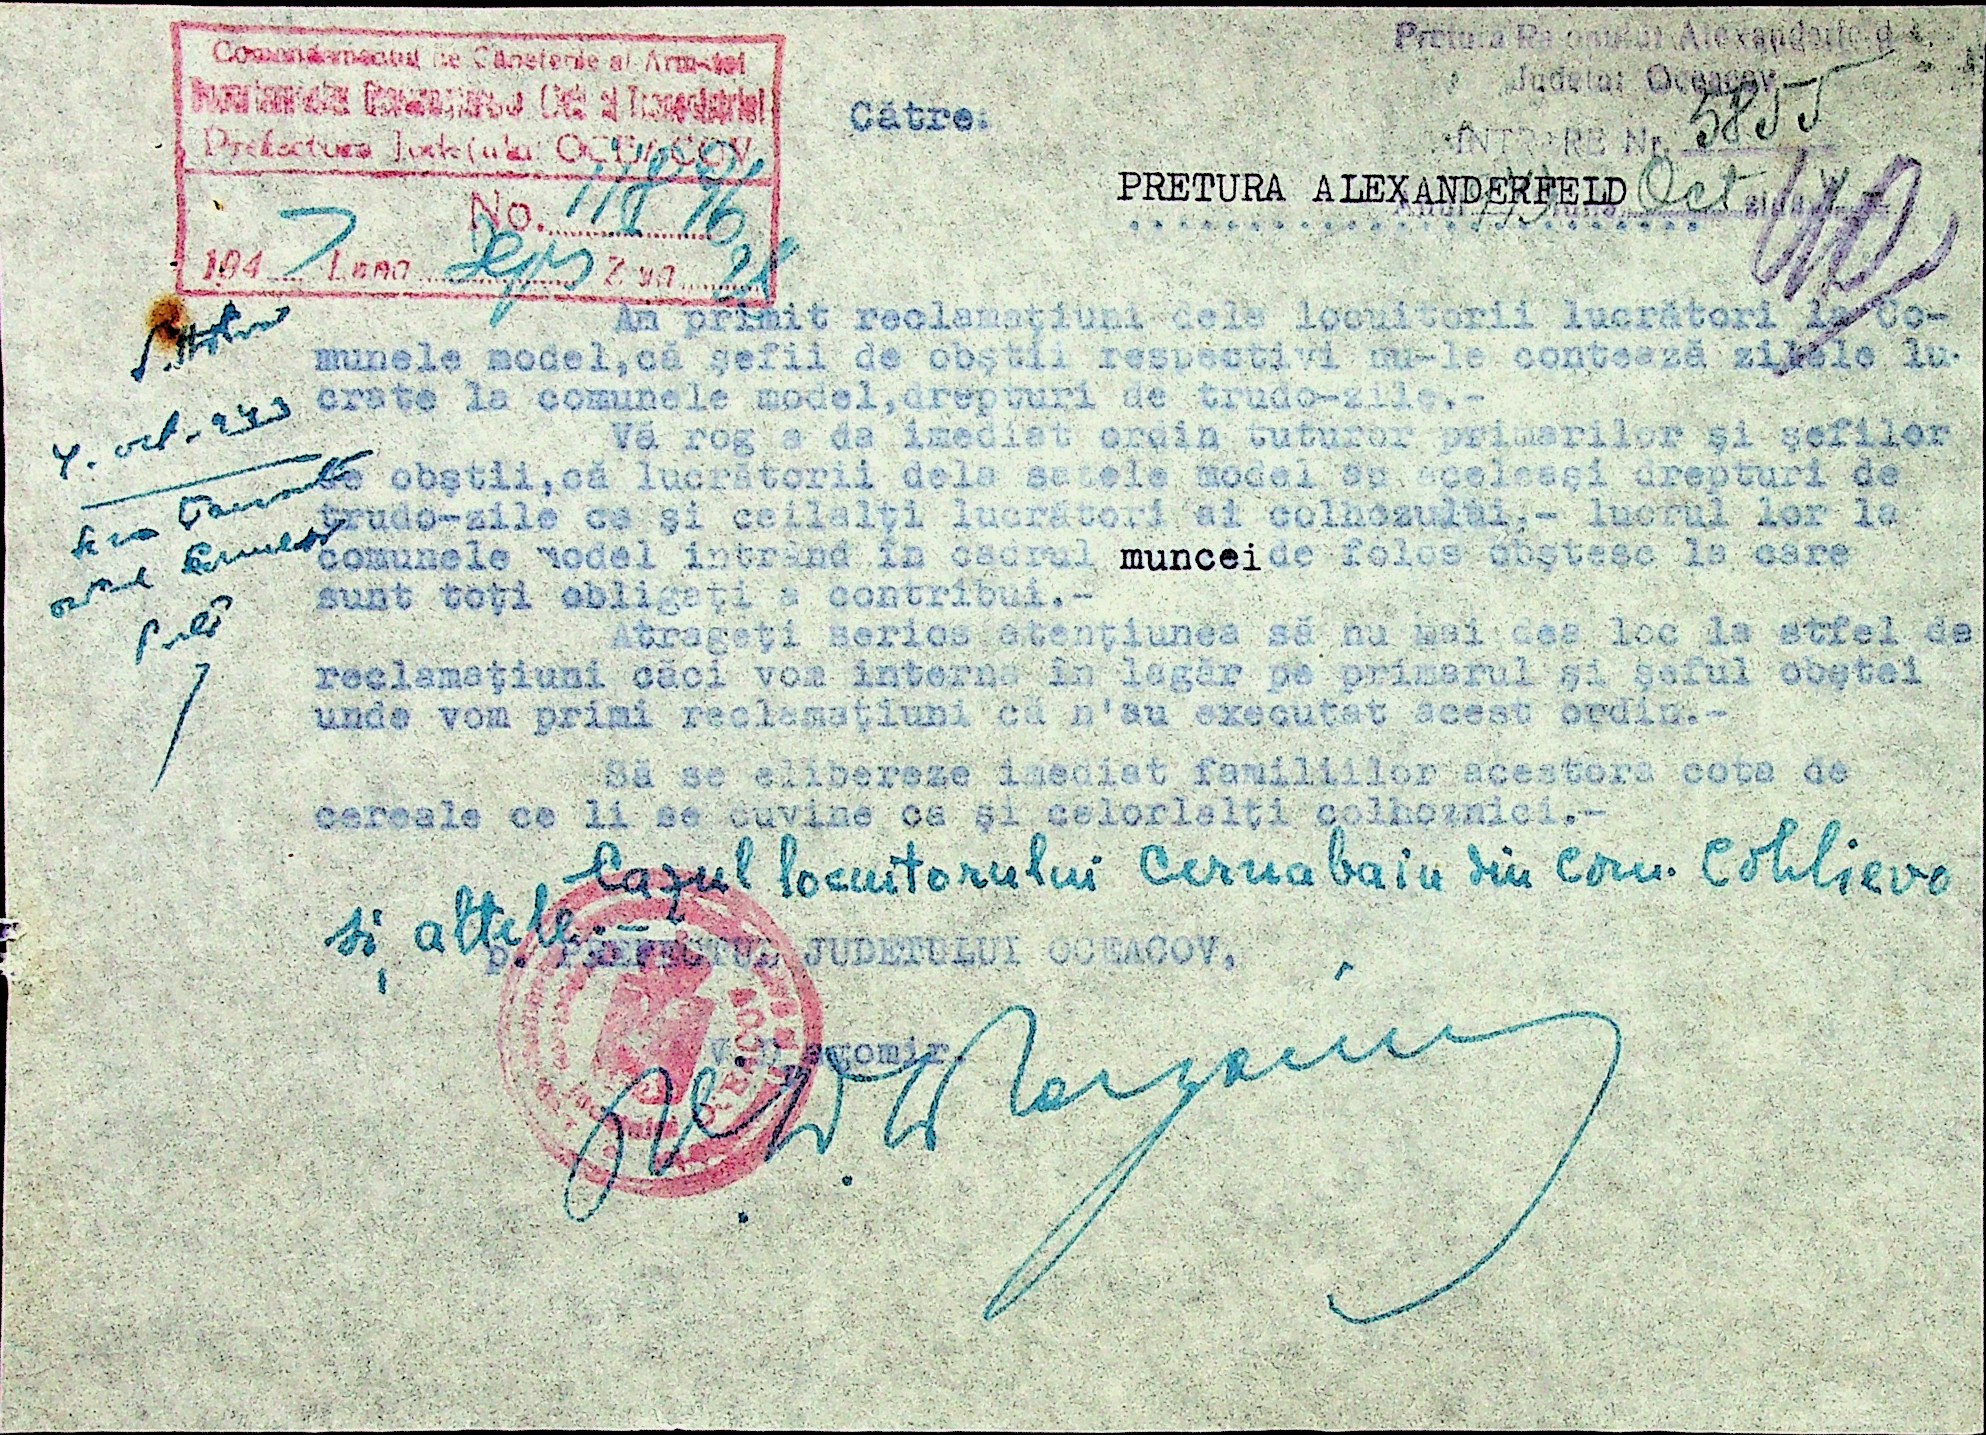 Comandamentul de Căpetenie al Armatei
Prefectura Județului OCEACOV
No. 11876
194 Luna Sept Ziua 28
Pretura Raionului Alexanderfeld
Județul Oceacov
INTRARE Nr. 5855
Oct
Către:
PRETURA ALEXANDERFELD
Am primit reclamațiuni dela locuitorii lucrători la Co-
munele model,că șefii de obștii respectivi nu-le contează zilele lu-
crate la comunele model,drepturi de trudo-zile.-
Vă rog a da imediat ordin tuturor primarilor și șefilor
de obștii,că lucrătorii dela satele model au aceleași drepturi de
trudo-zile ca și ceilalți lucrători ai colhozului,- lucrul lor la
comunele model intrând în cadrul muncei de folos obștesc la care
sunt toți obligați a contribui.-
Atrageți serios atențiunea să nu mai dea loc la atfel de
reclamațiuni căci vom interna în lagăr pe primarul și șeful obștei
unde vom primi reclamațiuni că n'au executat acest ordin.-
Să se elibereze imediat familiilor acestora cota de
cereale ce li se cuvine ca și celorlalți colhoznici.-
Cazul locuitorului Cernabaiu din com. Coblievo
și altele.-
p. PREFECTUL JUDETULUI OCEACOV,
4. oct. 943